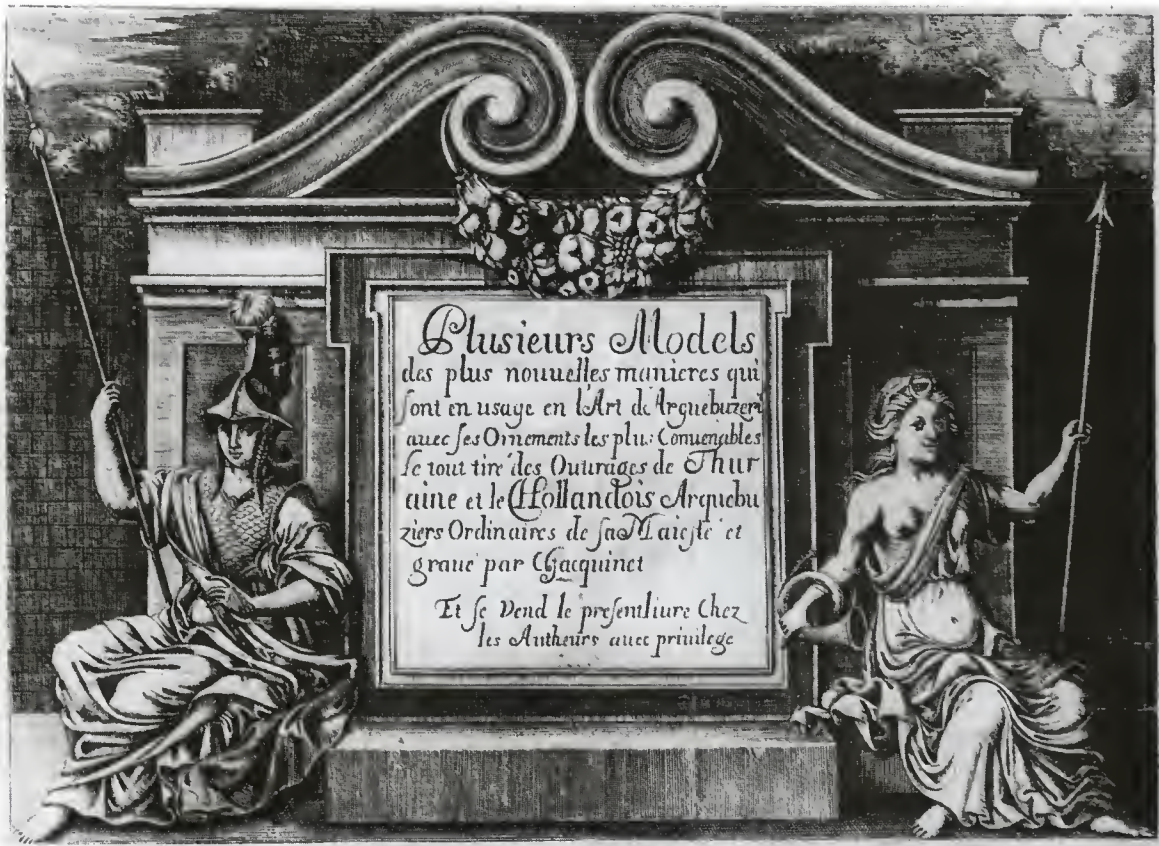 Plusieurs Models
des plus nouuelles manieres qui
sont en usage en l'Art de Arquebuzeri
auec ses Ornements les plus Conuenables
le tout tiré des Ouurages de Thur
aine et le Hollandois Arquebu
ziers Ordinaires de sa Maiesté et
graué par C Jacquinet
Et se Vend le present liure Chez
les Autheurs auec priuilege